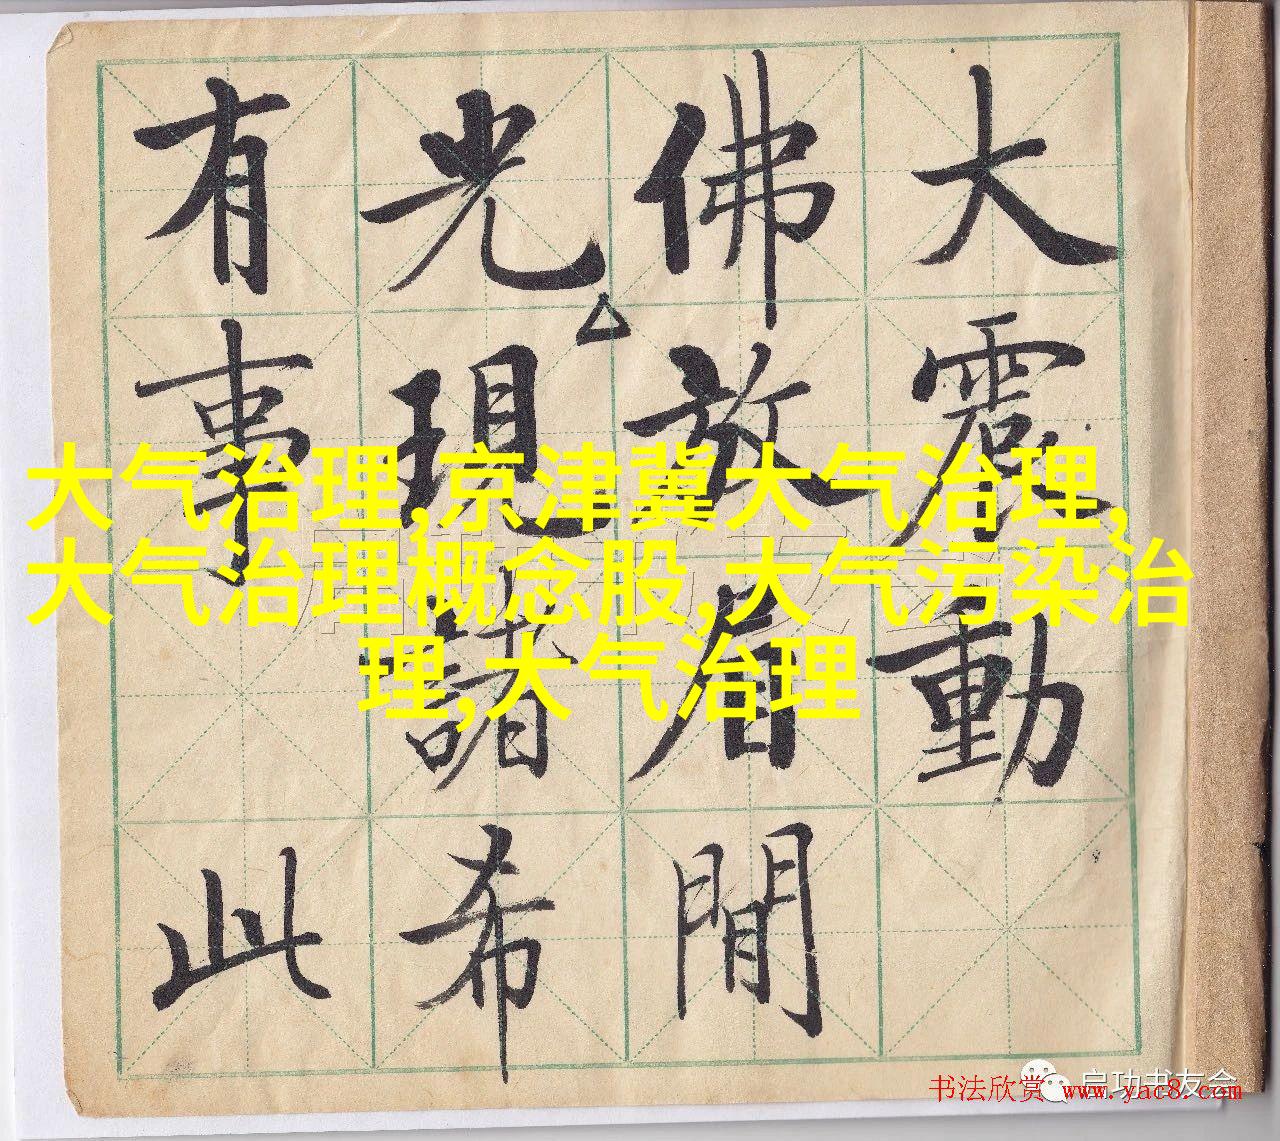 大震動
佛放眉間
光現諸希
有事此
大气治理,京津冀大气治理,
大气治理概念股,大气污染治
理,大气治理
启功书友会
书法欣赏 www.yac8.com